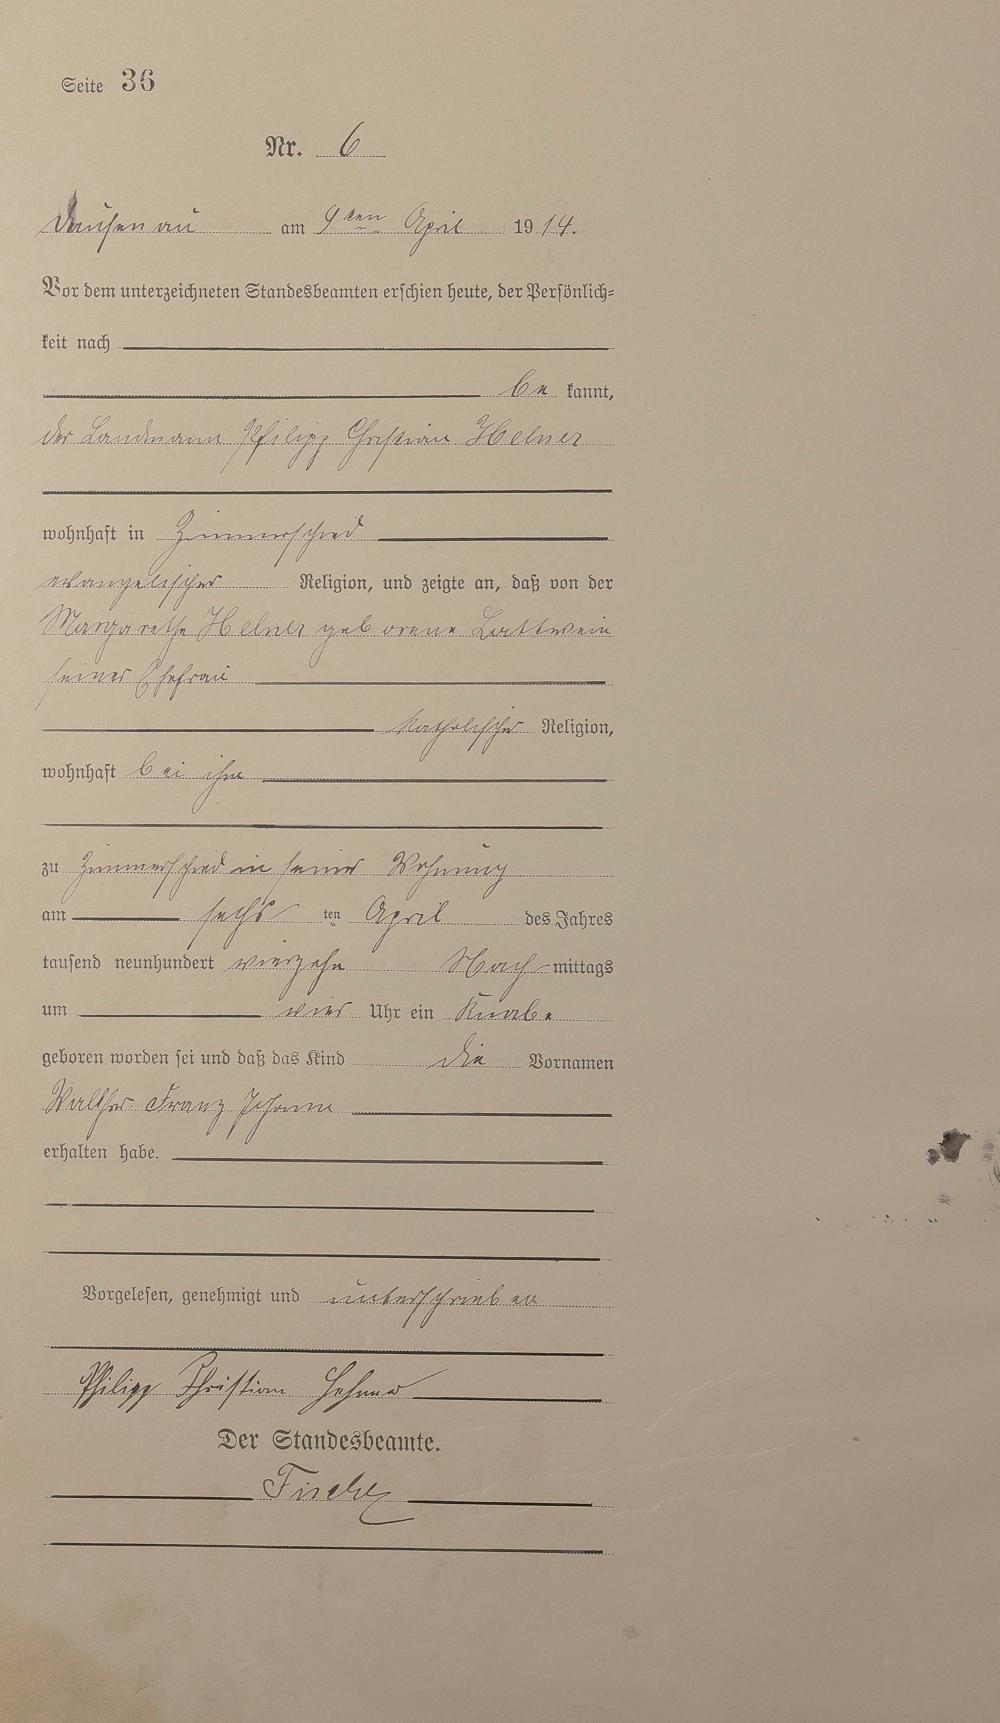 Seite 36
Nr. 6
Dausenau am 9ten April 1914.
Vor dem unterzeichneten Standesbeamten erschien heute, der Persönlich-
keit nach
be kannt,
der Landmann Philipp Christian
wohnhaft in Zimmerschied
evangelischer Religion, und zeigte an, daß von der
Margarethe geborene Lottwein
seiner Ehefrau
katholischer Religion,
wohnhaft bei ihm
zu Zimmerschied in seiner Wohnung
am sechsten April des Jahres
tausend neunhundert vierzehn Nachmittags
um vier Uhr ein Knabe
geboren worden sei und daß das Kind die Vornamen
Walther Franz
erhalten habe.
Vorgelesen, genehmigt und unterschrieben
Philipp Christian
Der Standesbeamte.